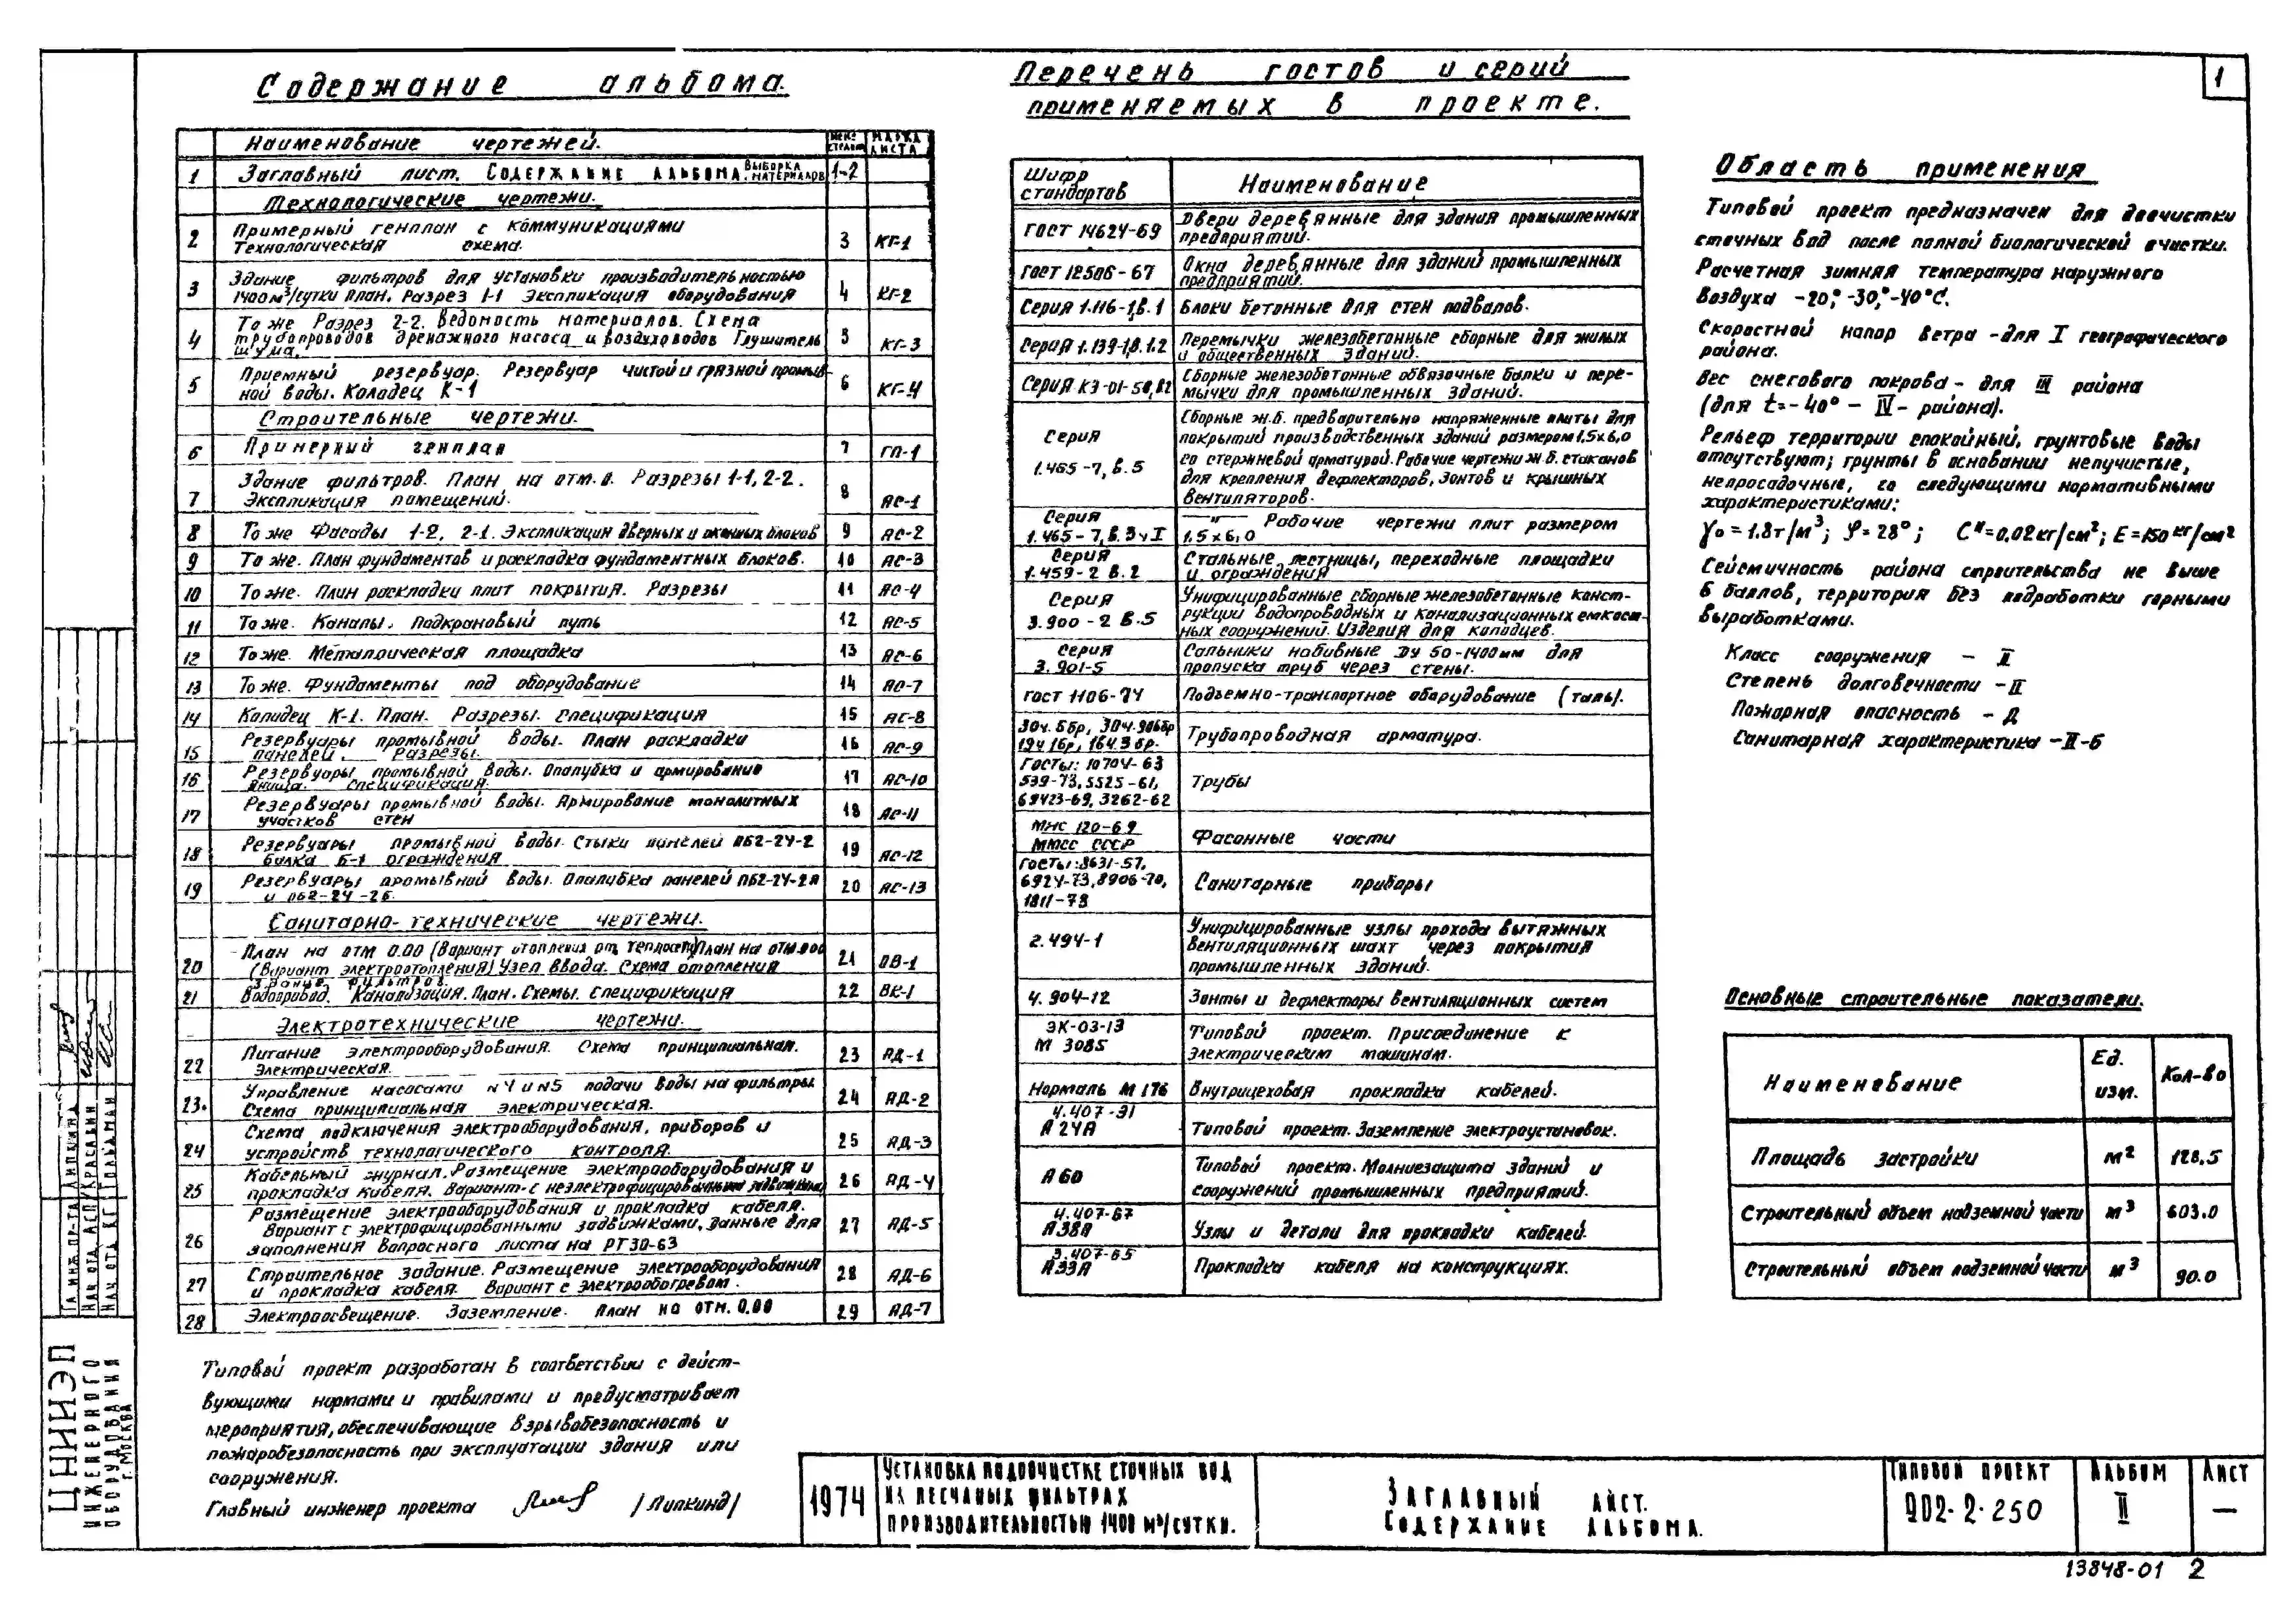 1
Содержание альбома.
Наименование чертежей.
МАРКА ЛИСТА
1 Заглавный лист. Содержание альбома. Выборка материалов 1-2
Технологические чертежи.
2 Примерный генплан с коммуникациями
Технологическая схема. 3 КГ-1
3 Здание фильтров для установки производительностью
1400м³/сутки план. Разрез 1-1 Экспликация оборудования 4 КГ-2
4 То же Разрез 2-2. Ведомость материалов. Схема
трубопроводов дренажного насоса и воздуховодов Глушитель
шума. 5 КГ-3
5 Приемный резервуар. Резервуар чистой и грязной промыв-
ной воды. Колодец К-1 6 КГ-4
Строительные чертежи.
6 Примерный генплан 7 ГП-1
7 Здание фильтров. План на отм. 0. Разрезы 1-1, 2-2.
Экспликация помещений. 8 АС-1
8 То же Фасады 1-2, 2-1. Экспликация дверных и оконных блоков 9 АС-2
9 То же. План фундаментов и раскладка фундаментных блоков. 10 АС-3
10 То же. План раскладки плит покрытия. Разрезы 11 АС-4
11 То же. Каналы. Подкрановый путь 12 АС-5
12 То же. Металлическая площадка 13 АС-6
13 То же. Фундаменты под оборудование 14 АС-7
14 Колодец К-1. План. Разрезы. Спецификация 15 АС-8
15 Резервуары промывной воды. План раскладки
панелей. Разрезы. 16 АС-9
16 Резервуары промывной воды. Опалубка и армирование
днища. Спецификация. 17 АС-10
17 Резервуары промывной воды. Армирование монолитных
участков стен 18 АС-11
18 Резервуары промывной воды. Стыки панелей ПБ2-24-2
балка Б-1 ограждения 19 АС-12
19 Резервуары промывной воды. Опалубка панелей ПБ2-24-2а
и ПБ2-24-2б. 20 АС-13
Санитарно-технические чертежи.
20 План на отм 0.00 (Вариант отопления от теплосети) План на отм. 0.00
(Вариант электроотопления) Узел ввода. Схема отопления 21 ОВ-1
Здание фильтров.
21 Водопровод. Канализация. План. Схемы. Спецификация 22 ВК-1
Электротехнические чертежи.
22 Питание электрооборудования. Схема принципиальная.
Электрическая. 23 АД-1
23. Управление насосами N4 и N5 подачи воды на фильтры.
Схема принципиальная электрическая. 24 АД-2
24 Схема подключения электрооборудования, приборов и
устройств технологического контроля. 25 АД-3
25 Кабельный журнал. Размещение электрооборудования и
прокладка кабеля. Вариант с неэлектрофицированными задвижками 26 АД-4
26 Размещение электрооборудования и прокладка кабеля.
Вариант с электрофицированными задвижками, данные для
заполнения вопросного листа на РТ30-63 27 АД-5
27 Строительное задание. Размещение электрооборудования
и прокладка кабеля. Вариант с электрообогревом. 28 АД-6
28 Электроосвещение. Заземление. План на отм. 0.00 29 АД-7
Типовой проект разработан в соответствии с дейст-
вующими нормами и правилами и предусматривает
мероприятия, обеспечивающие взрывобезопасность и
пожаробезопасность при эксплуатации здания или
сооружения.
Главный инженер проекта /Липкинд/
Перечень гостов и серий
применяемых в проекте.
Шифр стандартов Наименование
ГОСТ 14624-69 Двери деревянные для здания промышленных
предприятий.
ГОСТ 12506-67 Окна деревянные для зданий промышленных
предприятий.
Серия 1.116-1, В.1 Блоки бетонные для стен подвалов.
Серия 1.139-1, В.1.2 Перемычки железобетонные сборные для жилых
и общественных зданий.
Серия КЭ-01-58, В2 Сборные железобетонные обвязочные балки и пере-
мычки для промышленных зданий.
Серия 1.465-7, В.5 Сборные ж.б. предварительно напряженные плиты для
покрытий производственных зданий размером 1,5х6,0
со стержневой арматурой. Рабочие чертежи ж.б. стаканов
для крепления дефлекторов, зонтов и крышных
вентиляторов.
Серия 1.465-7, В.3ч I —"— Рабочие чертежи плит размером
1,5х6,0
Серия 1.459-2 В.2 Стальные лестницы, переходные площадки
и ограждения
Серия 3.900-2 В.5 Унифицированные сборные железобетонные конст-
рукции водопроводных и канализационных емкост-
ных сооружений. Изделия для колодцев.
Серия 3.901-5 Сальники набивные Ду 50-1400мм для
пропуска труб через стены.
ГОСТ 1106-74 Подъемно-транспортное оборудование (таль).
30ч.6бр, 30ч.906бр
19ч 16р, 16ч.3бр. Трубопроводная арматура.
Госты: 10704-63
539-73, 5525-61,
69423-69, 3262-62 Трубы
МНС 120-69
ММСС СССР Фасонные части
Госты: 8631-57,
6924-73, 8906-70,
1811-73 Санитарные приборы
2.494-1 Унифицированные узлы прохода вытяжных
вентиляционных шахт через покрытия
промышленных зданий.
4.904-12 Зонты и дефлекторы вентиляционных систем
ЭК-03-13
М 3085 Типовой проект. Присоединение к
электрическим машинам.
Нормаль М 176 Внутрицеховая прокладка кабелей.
4.407-31
А24А Типовой проект. Заземление электроустановок.
А60 Типовой проект. Молниезащита зданий и
сооружений промышленных предприятий.
4.407-67
А38А Узлы и детали для прокладки кабелей.
3.407-65
А33А Прокладка кабеля на конструкциях.
Область применения
Типовой проект предназначен для доочистки
сточных вод после полной биологической очистки.
Расчетная зимняя температура наружного
воздуха -20°, -30°, -40°С.
Скоростной напор ветра - для I географического
района.
Вес снегового покрова - для III района
(для t=-40° - IV- района).
Рельеф территории спокойный, грунтовые воды
отсутствуют; грунты в основании непучистые,
непросадочные, со следующими нормативными
характеристиками:
γ₀ = 1.8т/м³; φ = 28°; Сᴴ=0,02кг/см²; Е=150 кг/см²
Сейсмичность района строительства не выше
6 баллов, территория без подработки горными
выработками.
Класс сооружения - II
Степень долговечности - II
Пожарная опасность - Д
Санитарная характеристика - II-б
Основные строительные показатели.
Наименование Ед. изм. Кол-во
Площадь застройки м² 128.5
Строительный объем надземной части м³ 603.0
Строительный объем подземной части м³ 90.0
ЦНИИЭП
ИНЖЕНЕРНОГО
ОБОРУДОВАНИЯ
г. МОСКВА
1974
Установка по доочистке сточных вод
на песчаных фильтрах
производительностью 1400 м³/сутки.
Заглавный лист.
Содержание альбома.
Типовой проект
902-2-250
Альбом
II
Лист
—
13848-01 2